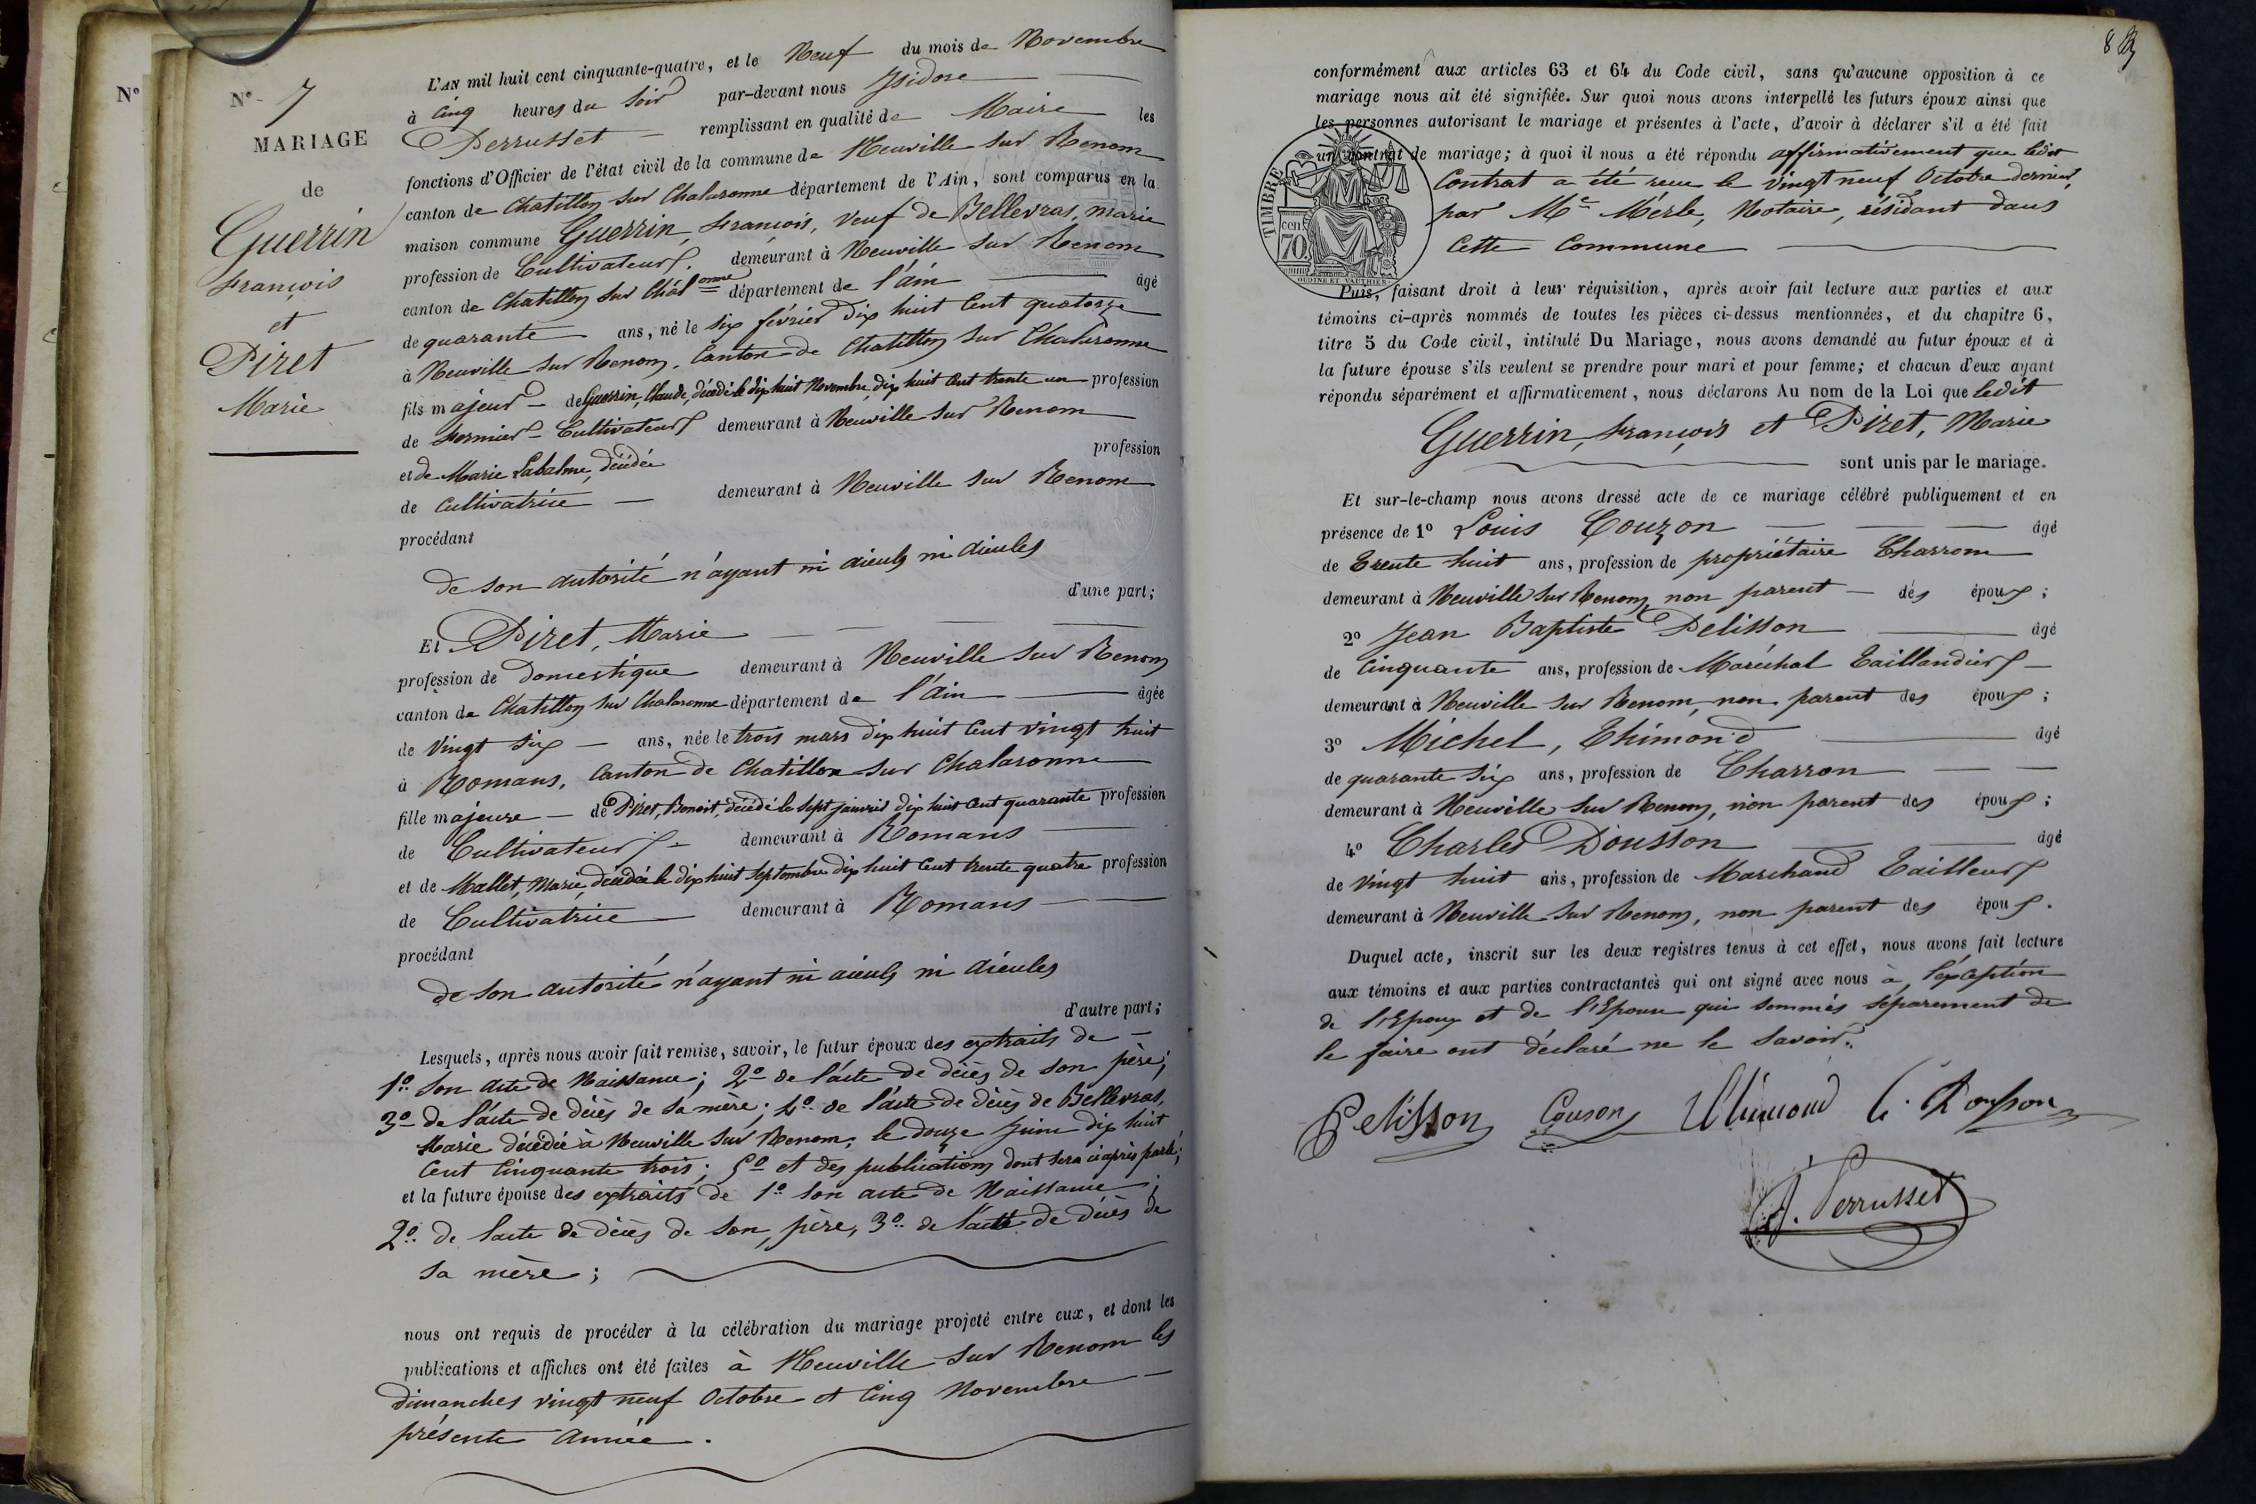 N°
N° 7
MARIAGE
de
Guerrin
François
et
Piret
Marie
L'AN mil huit cent cinquante-quatre, et le Neuf du mois de Novembre
à Cinq heures du Soir par-devant nous Isidore
Perrusset remplissant en qualité de Maire les
fonctions d'Officier de l'état civil de la commune de Neuville sur Renom
canton de Chatillon sur Chalaronne département de l'Ain, sont comparus en la
maison commune Guerrin, François, Veuf de Bellevras, Marie
profession de Cultivateur, demeurant à Neuville sur Renom
canton de Chatillon sur Chal onne département de l'ain âgé
de quarante ans, né le six février dix huit Cent quatorze
à Neuville sur Renom, Canton de Chatillon sur Chalaronne
fils majeur de Guerrin, Claude, décédé le dix huit Novembre dix huit Cent trente un profession
de fermier - Cultivateur demeurant à Neuville sur Renom
et de Marie Labalme, décédée profession
de Cultivatrice demeurant à Neuville sur Renom
procédant
de son autorité n'ayant ni aieuls ni aieules
d'une part;
Et Piret, Marie
profession de Domestique demeurant à Neuville sur Renom
canton de Chatillon sur Chalaronne département de l'Ain âgée
de Vingt six ans, née le trois mars dix huit Cent vingt huit
à Romans, Canton de Chatillon sur Chalaronne
fille majeure de Piret, Benoit, décédé le sept janvier dix huit Cent quarante profession
de Cultivateur demeurant à Romans
et de Mallet, Marie, décédée le dix huit Septembre dix huit Cent trente quatre profession
de Cultivatrice demeurant à Romans
procédant
de son autorité n'ayant ni aieuls ni aieules
d'autre part;
Lesquels, après nous avoir fait remise, savoir, le futur époux des extraits de
1° Son acte de Naissance; 2° de l'acte de décès de son père;
3° de l'acte de décès de sa mère; 4° de l'acte de décès de Bellevras,
Marie décédée à Neuville sur Renom, le douze Juin dix huit
Cent Cinquante trois; 5° et des publications dont sera ci après parlé;
et la future épouse des extraits de 1° Son acte de Naissance;
2° de l'acte de décès de son père, 3° de l'acte de décès de
sa mère;
nous ont requis de procéder à la célébration du mariage projeté entre eux, et dont les
publications et affiches ont été faites à Neuville sur Renom les
dimanches vingt neuf Octobre et Cinq Novembre
présente Année.
8
conformément aux articles 63 et 64 du Code civil, sans qu'aucune opposition à ce
mariage nous ait été signifiée. Sur quoi nous avons interpellé les futurs époux ainsi que
les personnes autorisant le mariage et présentes à l'acte, d'avoir à déclarer s'il a été fait
un contrat de mariage; à quoi il nous a été répondu affirmativement que ledit
Contrat a été reçu le vingt neuf Octobre dernier,
par Me Merle, Notaire, résidant dans
cette Commune
TIMBRE
cen.
70
OUDINÉ ET VAUTHIER
Puis, faisant droit à leur réquisition, après avoir fait lecture aux parties et aux
témoins ci-après nommés de toutes les pièces ci-dessus mentionnées, et du chapitre 6,
titre 5 du Code civil, intitulé Du Mariage, nous avons demandé au futur époux et à
la future épouse s'ils veulent se prendre pour mari et pour femme; et chacun d'eux ayant
répondu séparément et affirmativement, nous déclarons Au nom de la Loi que ledit
Guerrin, François et Piret, Marie
sont unis par le mariage.
Et sur-le-champ nous avons dressé acte de ce mariage célébré publiquement et en
présence de 1° Louis Couzon âgé
de Trente huit ans, profession de propriétaire Charron
demeurant à Neuville sur Renom, non parent des époux;
2° Jean Baptiste Pelisson âgé
de Cinquante ans, profession de Maréchal Taillandier
demeurant à Neuville sur Renom, non parent des époux;
3° Michel, Thimond âgé
de quarante six ans, profession de Charron
demeurant à Neuville sur Renom, non parent des époux;
4° Charles Dousson âgé
de Vingt huit ans, profession de Marchand Tailleur
demeurant à Neuville sur Renom, non parent des époux.
Duquel acte, inscrit sur les deux registres tenus à cet effet, nous avons fait lecture
aux témoins et aux parties contractantes qui ont signé avec nous à l'exception
de l'Epoux et de l'Epouse qui sommés séparement de
le faire ont déclaré ne le savoir.
Pelisson Couson Thimond C. Dousson
J. Perrusset